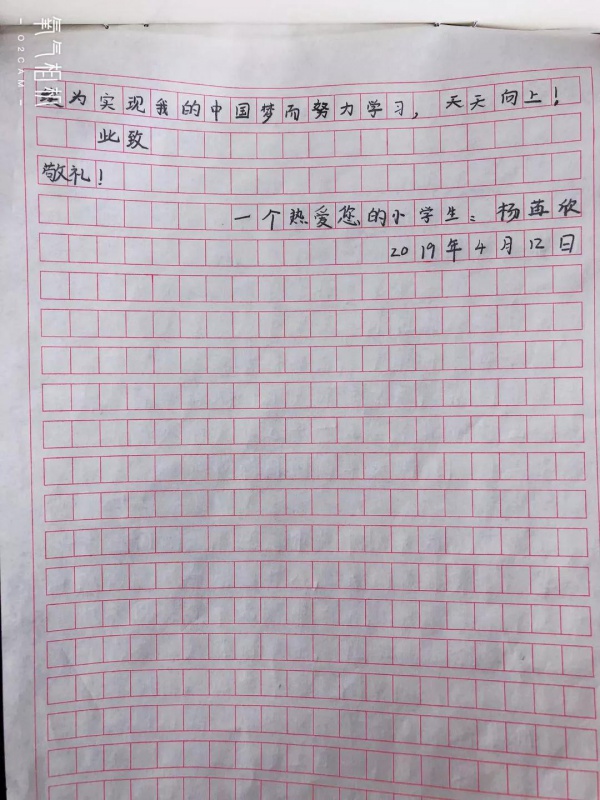 氧气相机
-O2CAM-
为实现我的中国梦而努力学习，天天向上！
此致
敬礼！
一个热爱您的小学生：杨苗欣
2019年4月12日